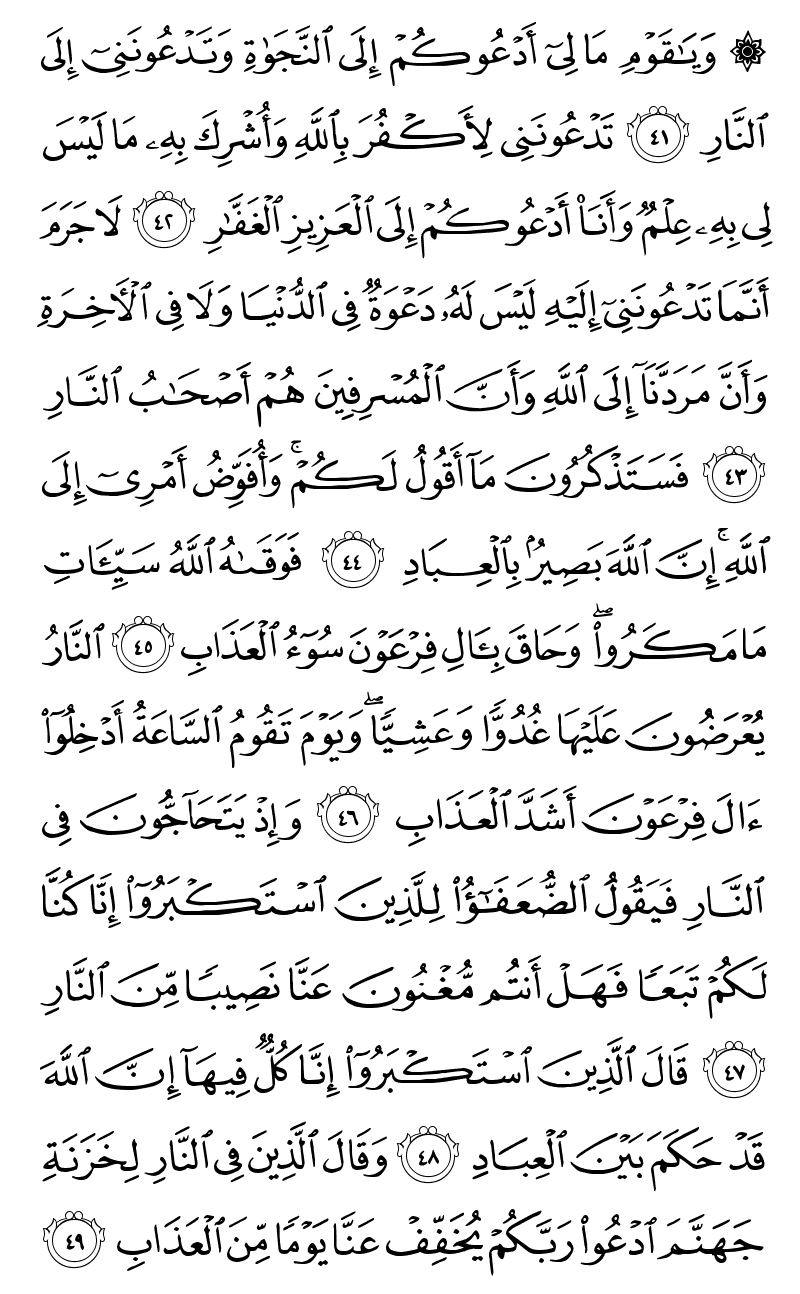 ۞ وَيَٰقَوْمِ مَا لِىٓ أَدْعُوكُمْ إِلَى ٱلنَّجَوٰةِ وَتَدْعُونَنِىٓ إِلَى
ٱلنَّارِ ٤١ تَدْعُونَنِى لِأَكْفُرَ بِٱللَّهِ وَأُشْرِكَ بِهِۦ مَا لَيْسَ
لِى بِهِۦ عِلْمٌ وَأَنَا۠ أَدْعُوكُمْ إِلَى ٱلْعَزِيزِ ٱلْغَفَّٰرِ ٤٢ لَا جَرَمَ
أَنَّمَا تَدْعُونَنِىٓ إِلَيْهِ لَيْسَ لَهُۥ دَعْوَةٌ فِى ٱلدُّنْيَا وَلَا فِى ٱلْأَخِرَةِ
وَأَنَّ مَرَدَّنَآ إِلَى ٱللَّهِ وَأَنَّ ٱلْمُسْرِفِينَ هُمْ أَصْحَٰبُ ٱلنَّارِ
٤٣ فَسَتَذْكُرُونَ مَآ أَقُولُ لَكُمْ ۚ وَأُفَوِّضُ أَمْرِىٓ إِلَى
ٱللَّهِ ۚ إِنَّ ٱللَّهَ بَصِيرٌۢ بِٱلْعِبَادِ ٤٤ فَوَقَىٰهُ ٱللَّهُ سَيِّـَٔاتِ
مَا مَكَرُوا۟ ۖ وَحَاقَ بِـَٔالِ فِرْعَوْنَ سُوٓءُ ٱلْعَذَابِ ٤٥ ٱلنَّارُ
يُعْرَضُونَ عَلَيْهَا غُدُوًّا وَعَشِيًّا ۖ وَيَوْمَ تَقُومُ ٱلسَّاعَةُ أَدْخِلُوٓا۟
ءَالَ فِرْعَوْنَ أَشَدَّ ٱلْعَذَابِ ٤٦ وَإِذْ يَتَحَآجُّونَ فِى
ٱلنَّارِ فَيَقُولُ ٱلضُّعَفَٰٓؤُا۟ لِلَّذِينَ ٱسْتَكْبَرُوٓا۟ إِنَّا كُنَّا
لَكُمْ تَبَعًا فَهَلْ أَنتُم مُّغْنُونَ عَنَّا نَصِيبًا مِّنَ ٱلنَّارِ
٤٧ قَالَ ٱلَّذِينَ ٱسْتَكْبَرُوٓا۟ إِنَّا كُلٌّ فِيهَآ إِنَّ ٱللَّهَ
قَدْ حَكَمَ بَيْنَ ٱلْعِبَادِ ٤٨ وَقَالَ ٱلَّذِينَ فِى ٱلنَّارِ لِخَزَنَةِ
جَهَنَّمَ ٱدْعُوا۟ رَبَّكُمْ يُخَفِّفْ عَنَّا يَوْمًا مِّنَ ٱلْعَذَابِ ٤٩